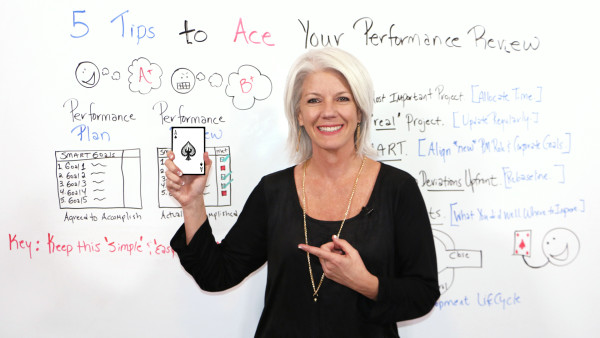 5 Tips to Ace Your Performance Review
A+
B+
Performance Plan
SMART Goals
1. Goal 1
2. Goal 2
3. Goal 3
4. Goal 4
5. Goal 5
Agreed to Accomplish
Performance
met
A
Key: Keep this "Simple"
Most Important Project. [Allocate Time]
"real" Project. [Update Regularly]
[Align "new" Corporate Goals]
Deviations Upfront. [Rebaseline]
[What You did Well, Where to Improve]
Lifecycle